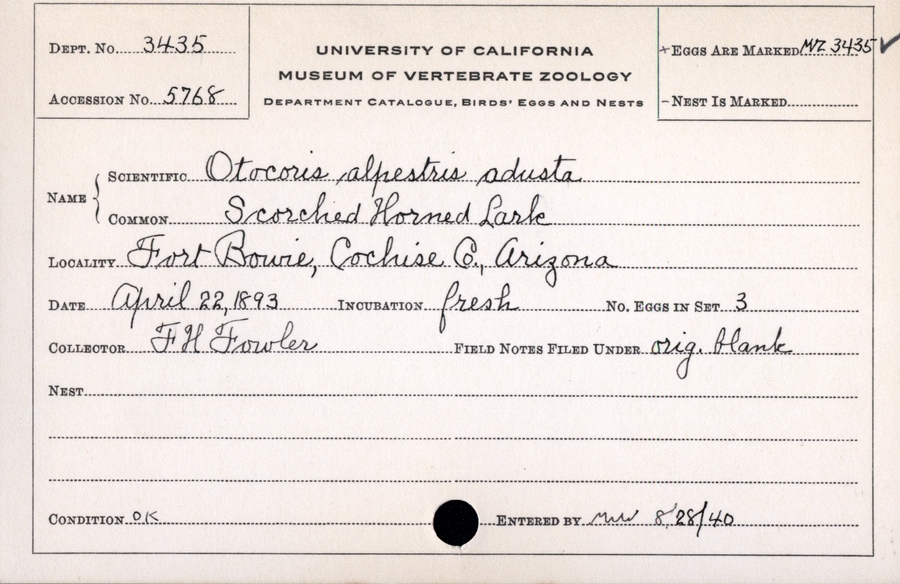 Dept. No. 3435
Accession No. 5768
UNIVERSITY OF CALIFORNIA
MUSEUM OF VERTEBRATE ZOOLOGY
Department Catalogue, Birds' Eggs and Nests
+ Eggs Are Marked MVZ 3435 ✓
- Nest Is Marked
Name { Scientific Otocoris alpestris adusta
Common Scorched Horned Lark
Locality Fort Bowie, Cochise Co., Arizona
Date April 22, 1893 Incubation fresh No. Eggs in Set 3
Collector F H Fowler Field Notes Filed Under orig. blank
Nest
Condition OK Entered by 8/28/40